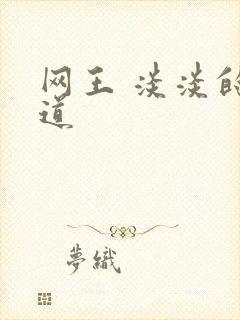 网王 淡淡的
道
夢織